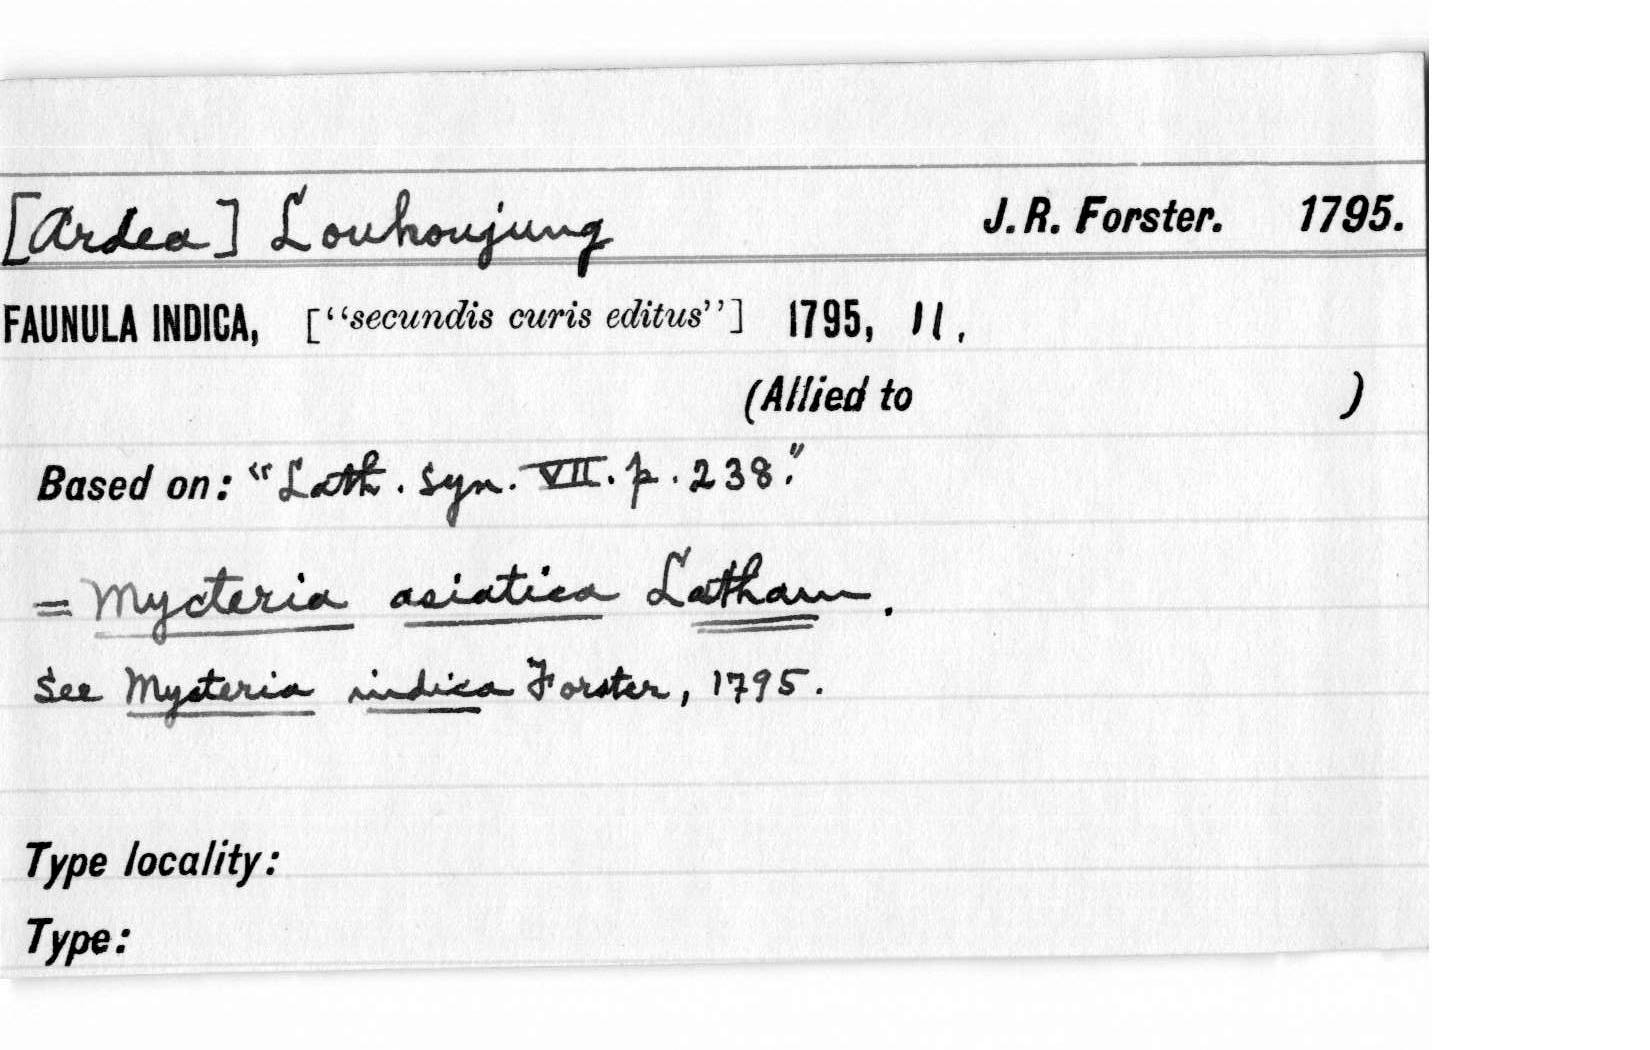 [Ardea] Louhoujung J. R. Forster. 1795.
FAUNULA INDICA, ["secundis curis editus"] 1795, 11.
(Allied to )
Based on: "Lath. Syn. VII. p. 238."
= Mycteria asiatica Latham.
See Mycteria indica Forster, 1795.
Type locality:
Type: